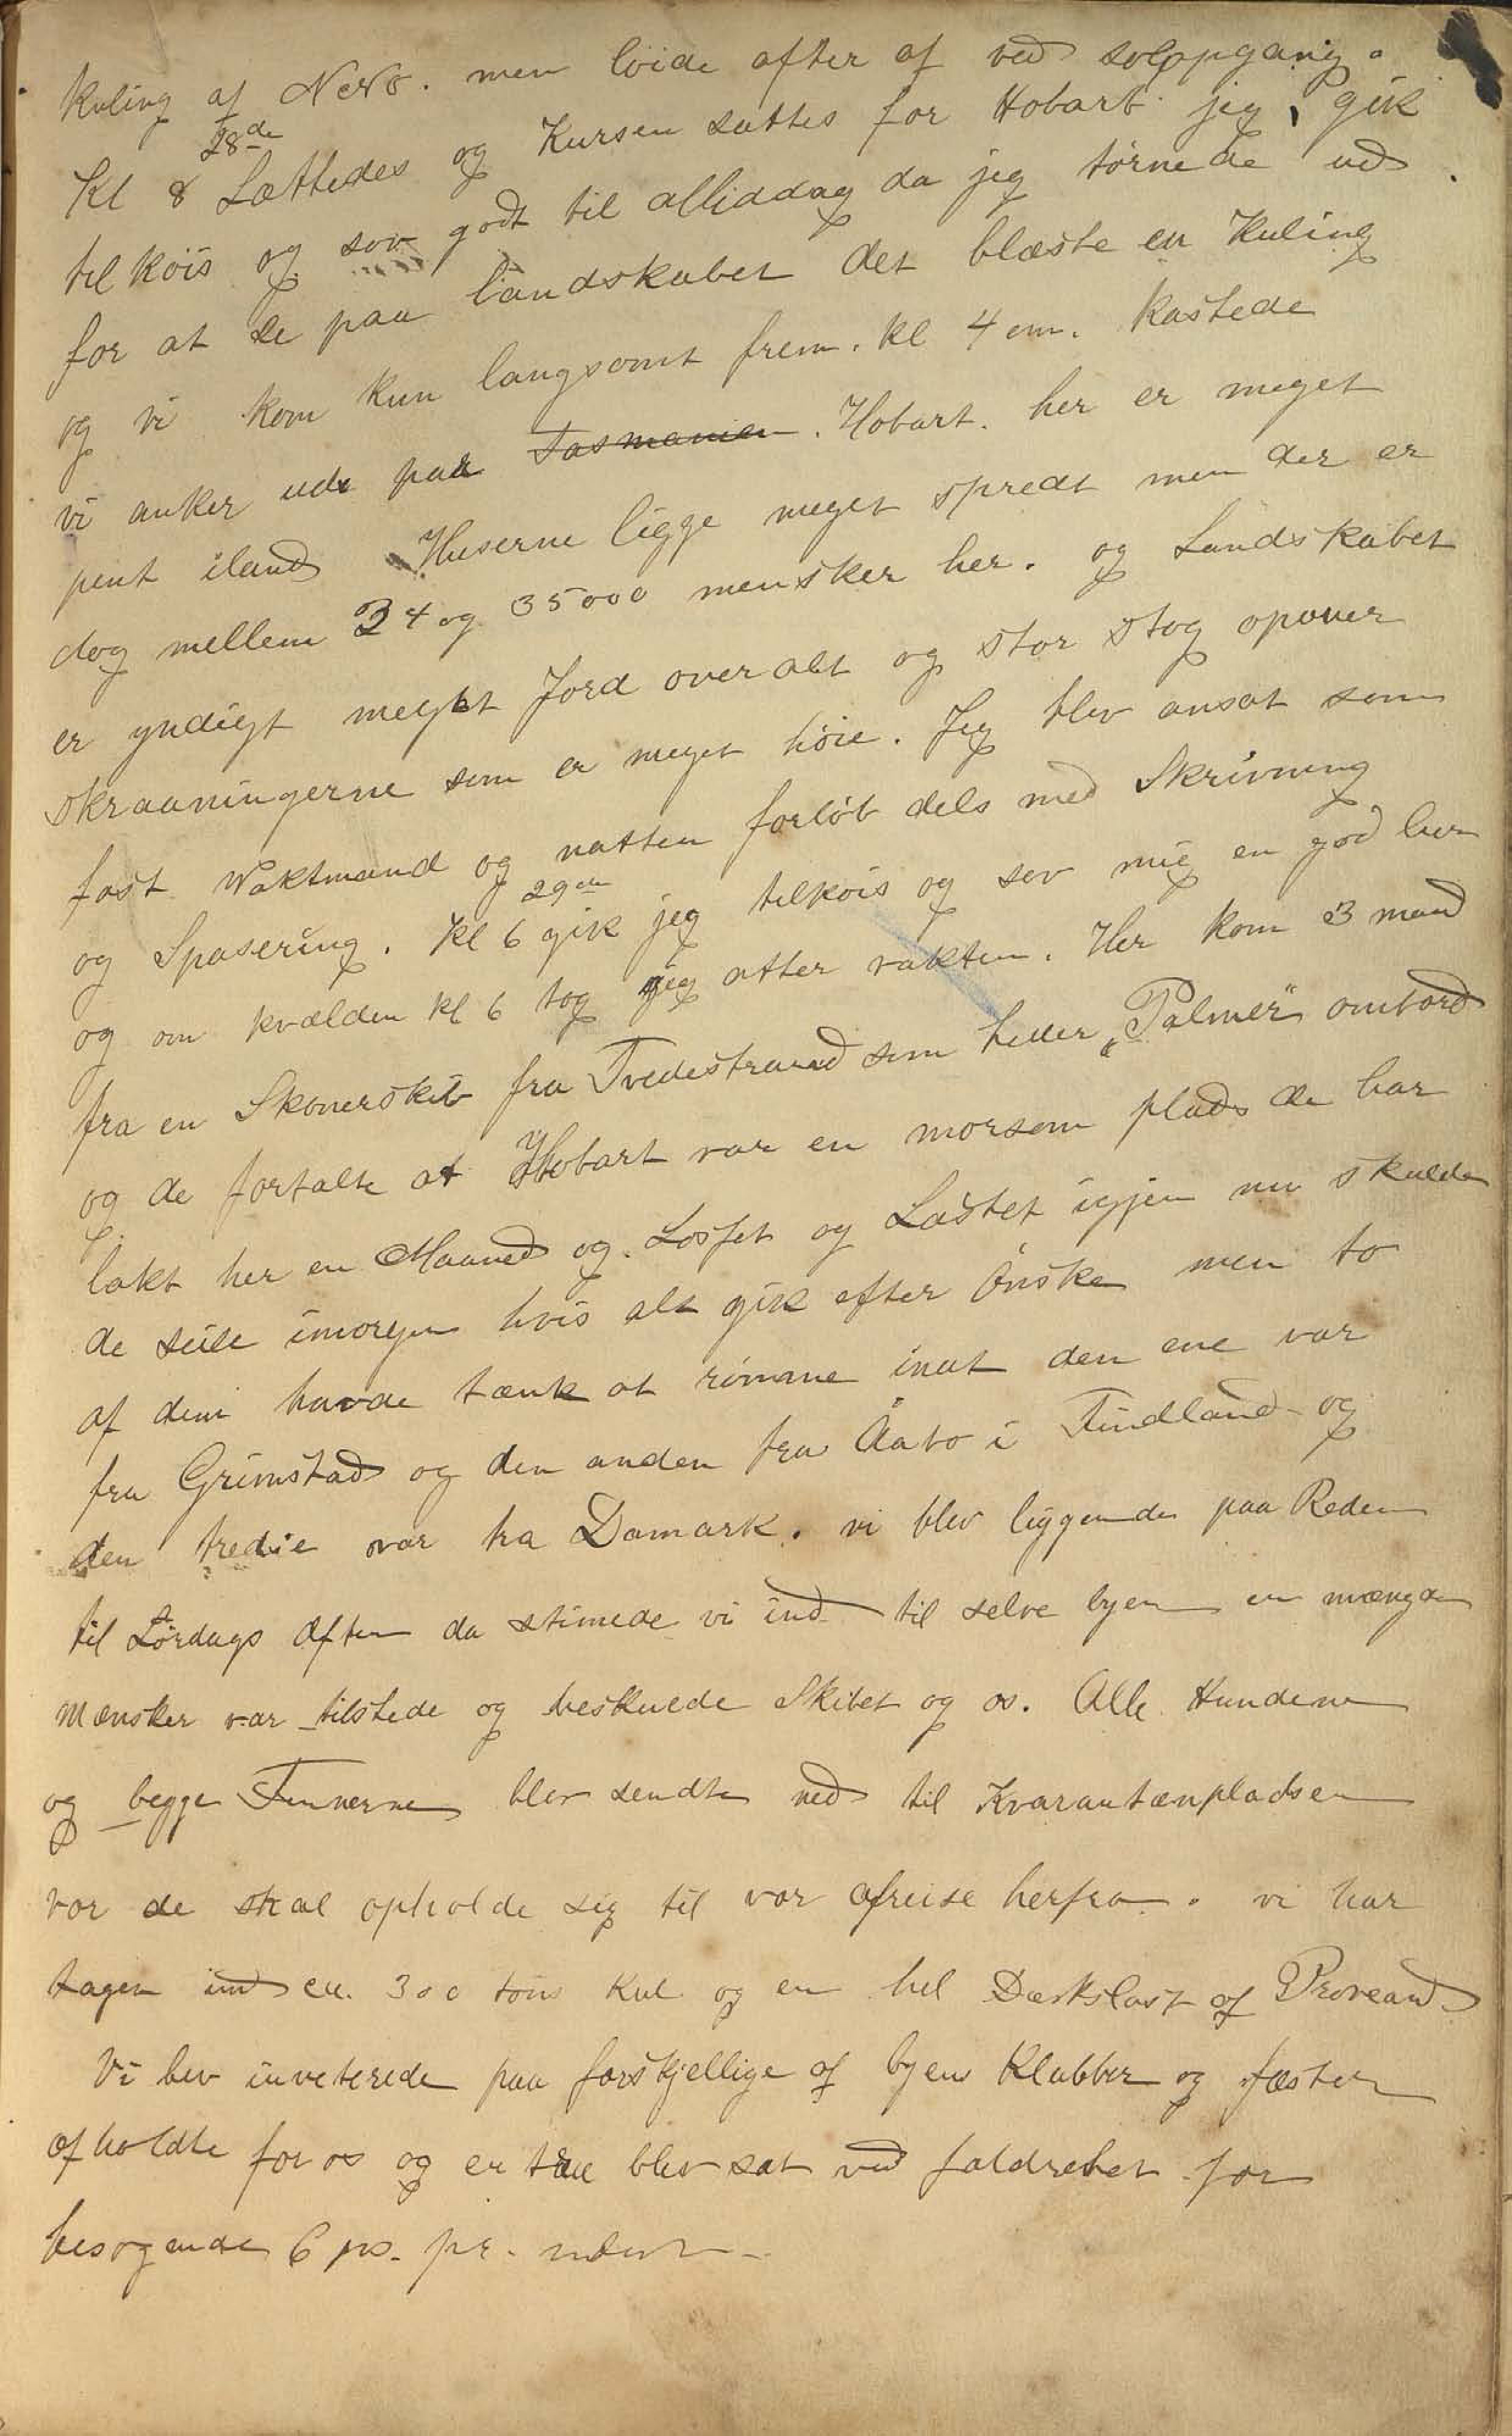 Kuling af NNO. men løide after af ved solopgang.
Kl 8 28de Lættedes og Kursen sattes for Hobart jeg gik
tilkøis og sov godt til alliddag da jeg tørnede ud
for at se paa landskabet det blæste en Kuling
og vi kom kun langsomt frem. Kl 4 em. kastede
vi anker ude paa Tasmanien. Hobart. her er meget
pent iland Huserne ligge meget spredt men der er
dog mellem 34 og 35000 mensker her. og Landskabet
er yndigt meget Jord overalt og stor skog opover
skraaningerne som er meget høie. Jeg blev ansat som
fast Waktmand og natten forløb dels med Skrivning
og Spasering. Kl 6 29de gik jeg tilkøis og sov mig en god lur
og om kvælden Kl 6 tog jeg atter vakten. Her kom 3 mand
fra en Skonerskib fra Tvedestrand som heder "Palmer" ombord
og de fortalte at Hobart var en morsom plads de har
lakt her en Maaned og Losset og Lastet igjen nu skulde
de seile imorgen hvis alt gik efter Ønske men to
af dem havde tænk at rømme inat den ene var
fra Grimstad og den anden fra Åabo i Findland og
den tredie var fra Damark. vi blev liggende paa Reden
til Lørdags Aften da stimede vi ind til selve byen en mængde
Mænsker var tilstede og beskuede Skibet og os. Alle Hundene
og begge Finnerne blev sendte ned til Kvarantænpladsen
vor de skal opholde sig til vor afreise herfra. vi har
tagen ind ca. 300 tons Kul og en hel Dækslast af Proveand
Vi bev inveterede paa forskjellige af byens Klubber og fæster
afholdte for os og en blev sat ved faldrebet for
besøgende 6 ps. pr.